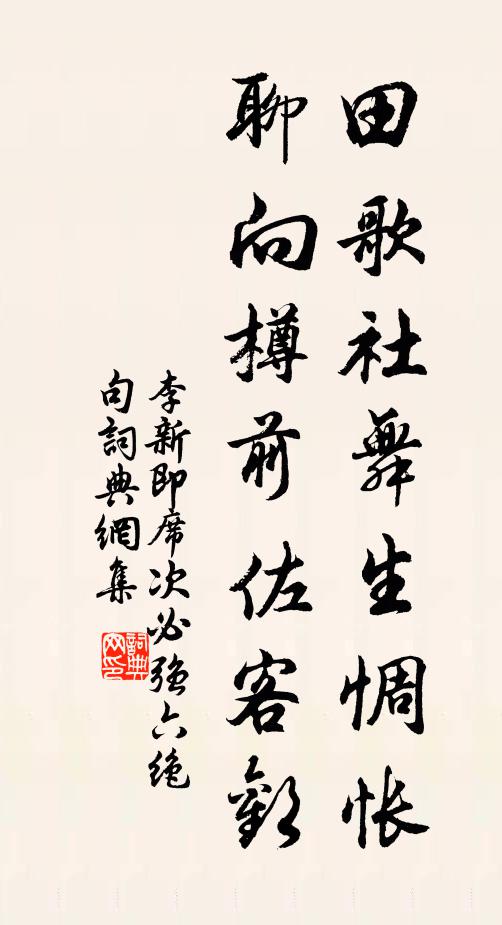 田歌社舞生惆怅
聊向樽前佐客歡
李新即席次必强六絶
句詞典網集
詞典網印